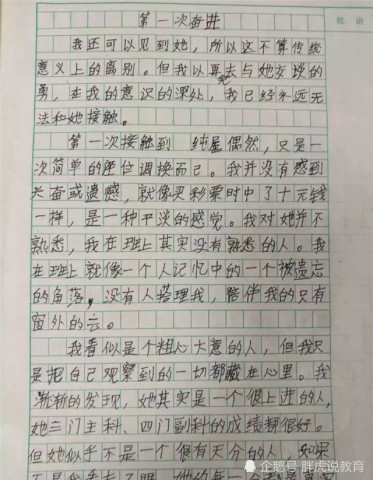 第一次奋进
检 语
我还可以见到她，所以这不算传统
意义上的离别。但我以再去与她交谈的
勇，在我的意识的深处，我已经永远无
法和她接触。
第一次接触到 纯属偶然，只是一
次简单的座位调换而已。我并没有感到
兴奋或遗感，就像买彩票时中了十元钱
一样，是一种平淡的感觉。我对她并不
熟悉，我在班上其实没有熟悉的人。我
在班上就像一个人记忆中的一个被遗忘
的角落，没有人搭理我，陪伴我的只有
窗外的云。
我看似是个粗心大意的人，但我只
是把自己观察到的一切都藏在心里。我
渐渐的发现，她其实是一个很上进的人，
她三门主科、四门副科的成绩都很好。
但她似乎不是一个很有天分的人，如果
企鹅号 胖虎说教育